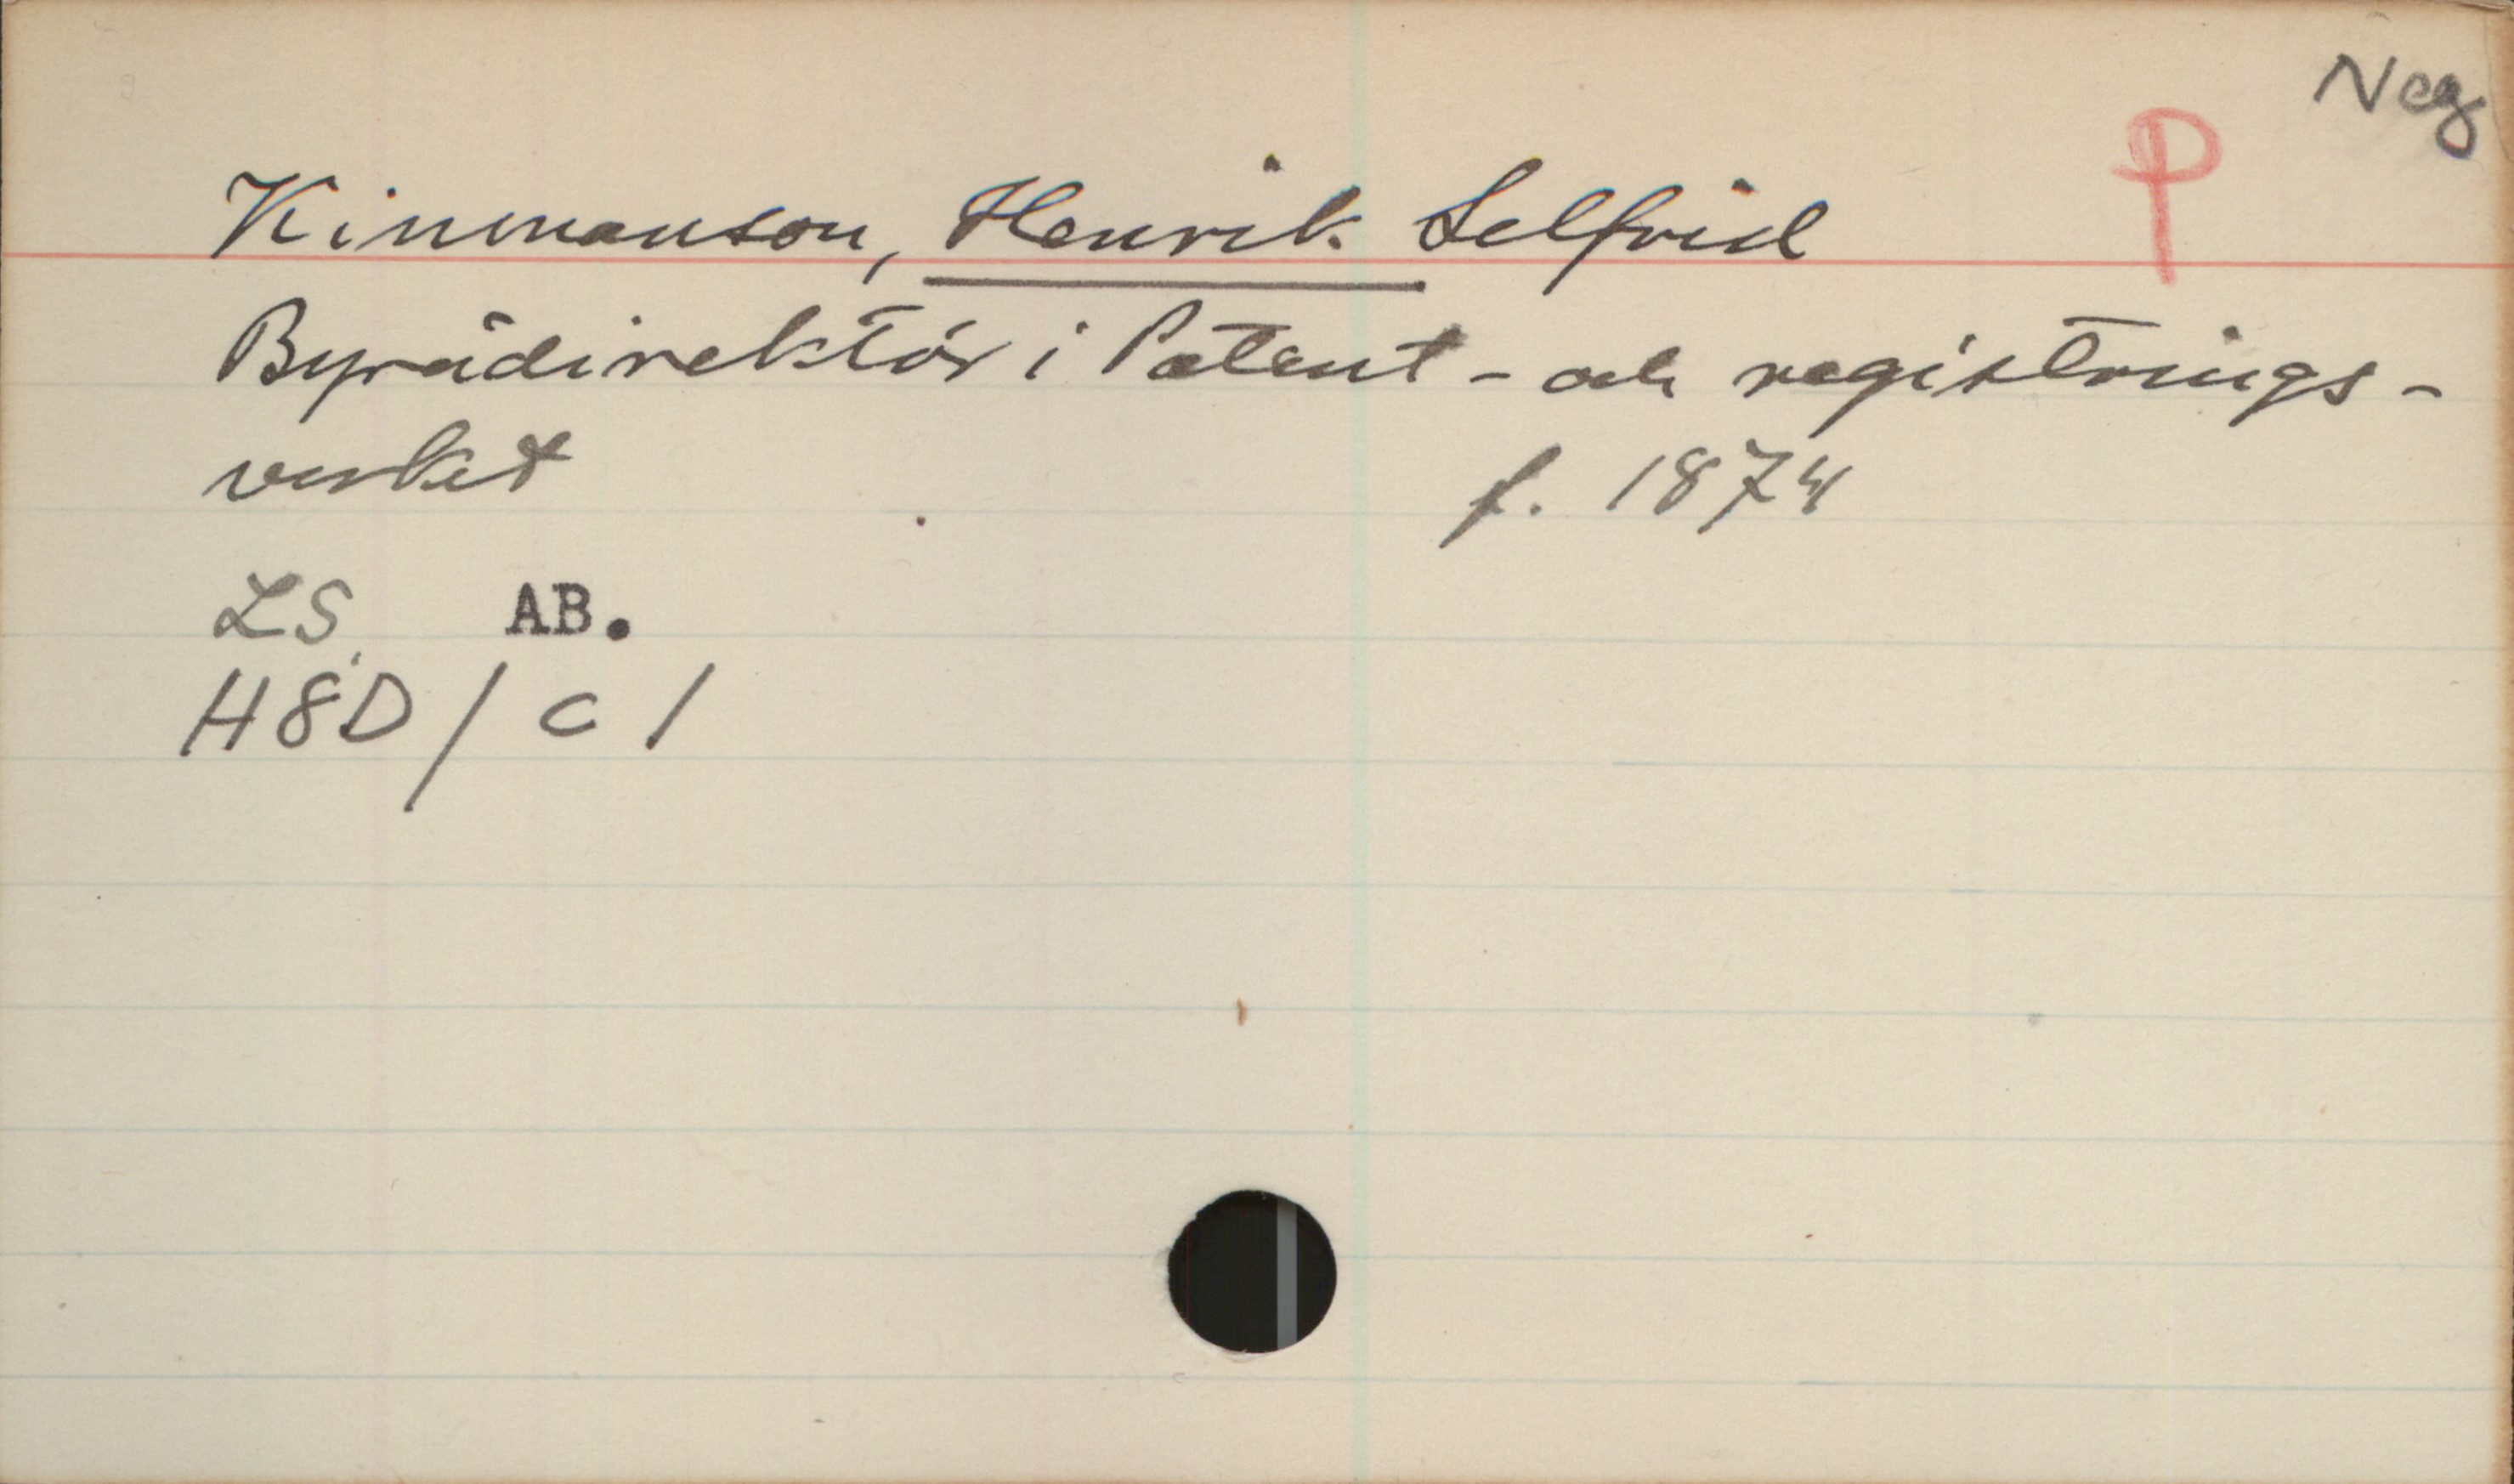 Neg
P
Kinmanson, Henrik Selfrid
Byrådirektör i Patent- och registrings-
verket
f. 1874
LS. AB.
H8D/C1